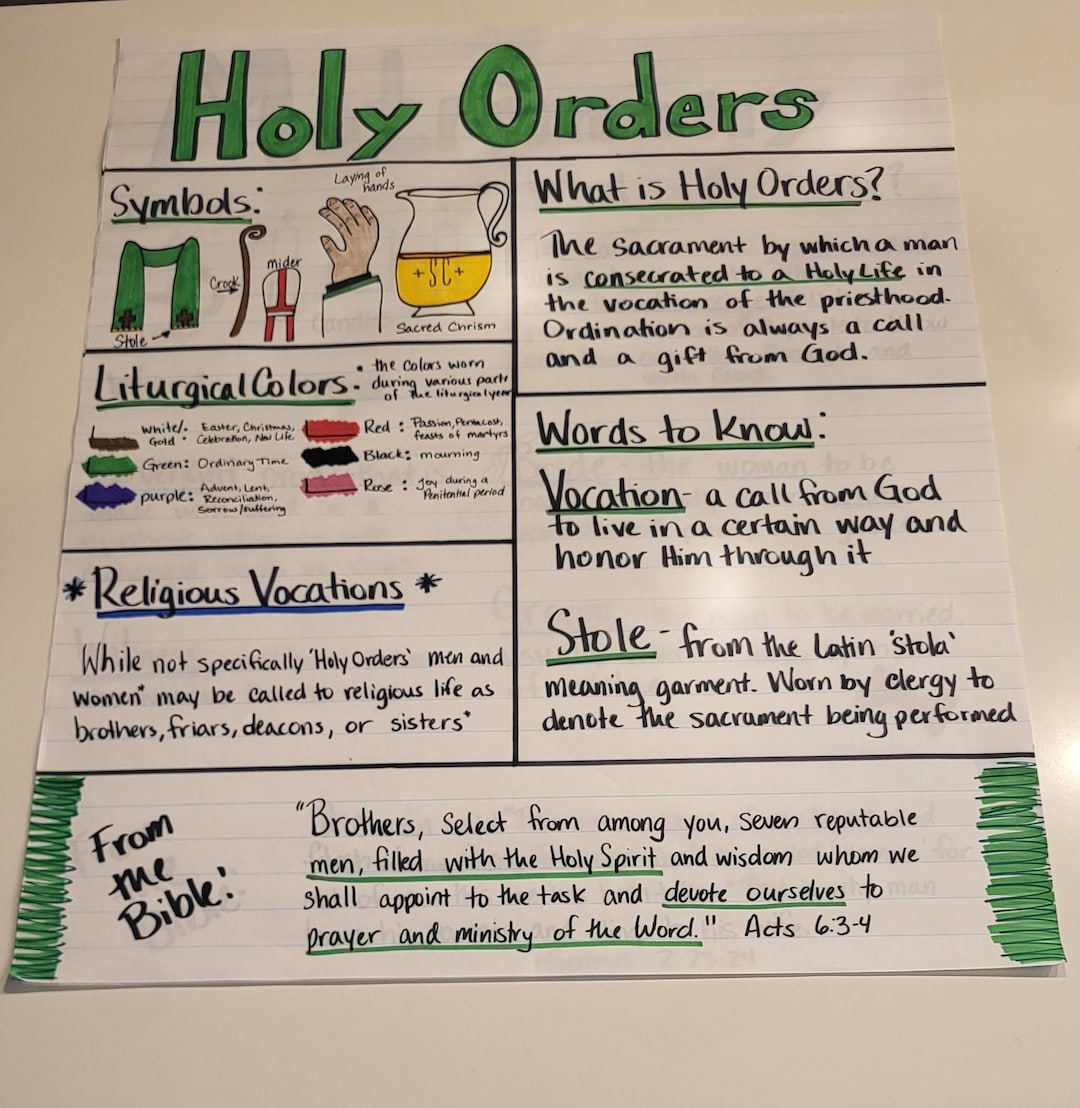 Holy Orders
Symbols:
Laying of
hands
Crook
mider
+SC+
Stole
Sacred Chrism
What is Holy Orders?
The Sacrament by which a man
is consecrated to a Holy Life in
the vocation of the priesthood.
Ordination is always a call
and a gift from God.
Liturgical Colors:
the colors worn
during various parts
of the liturgical year
White/
Gold :
Easter, Christmas,
Celebration, New Life
Green: Ordinary Time
purple:
Advent, Lent,
Reconciliation,
Sorrow/suffering
Red :
Passion, Pentecost,
feasts of martyrs
Black: mourning
Rose :
Joy during a
Penitential period
Words to Know:
Vocation- a call from God
to live in a certain way and
honor Him through it
Stole - from the Latin 'stola'
meaning garment. Worn by clergy to
denote the sacrament being performed
* Religious Vocations *
While not specifically 'Holy Orders' men and
women* may be called to religious life as
brothers, friars, deacons, or sisters*
From
the
Bible:
"Brothers, Select from among you, seven reputable
men, filled with the Holy Spirit and wisdom whom we
shall appoint to the task and devote ourselves to
prayer and ministry of the Word." Acts 6:3-4